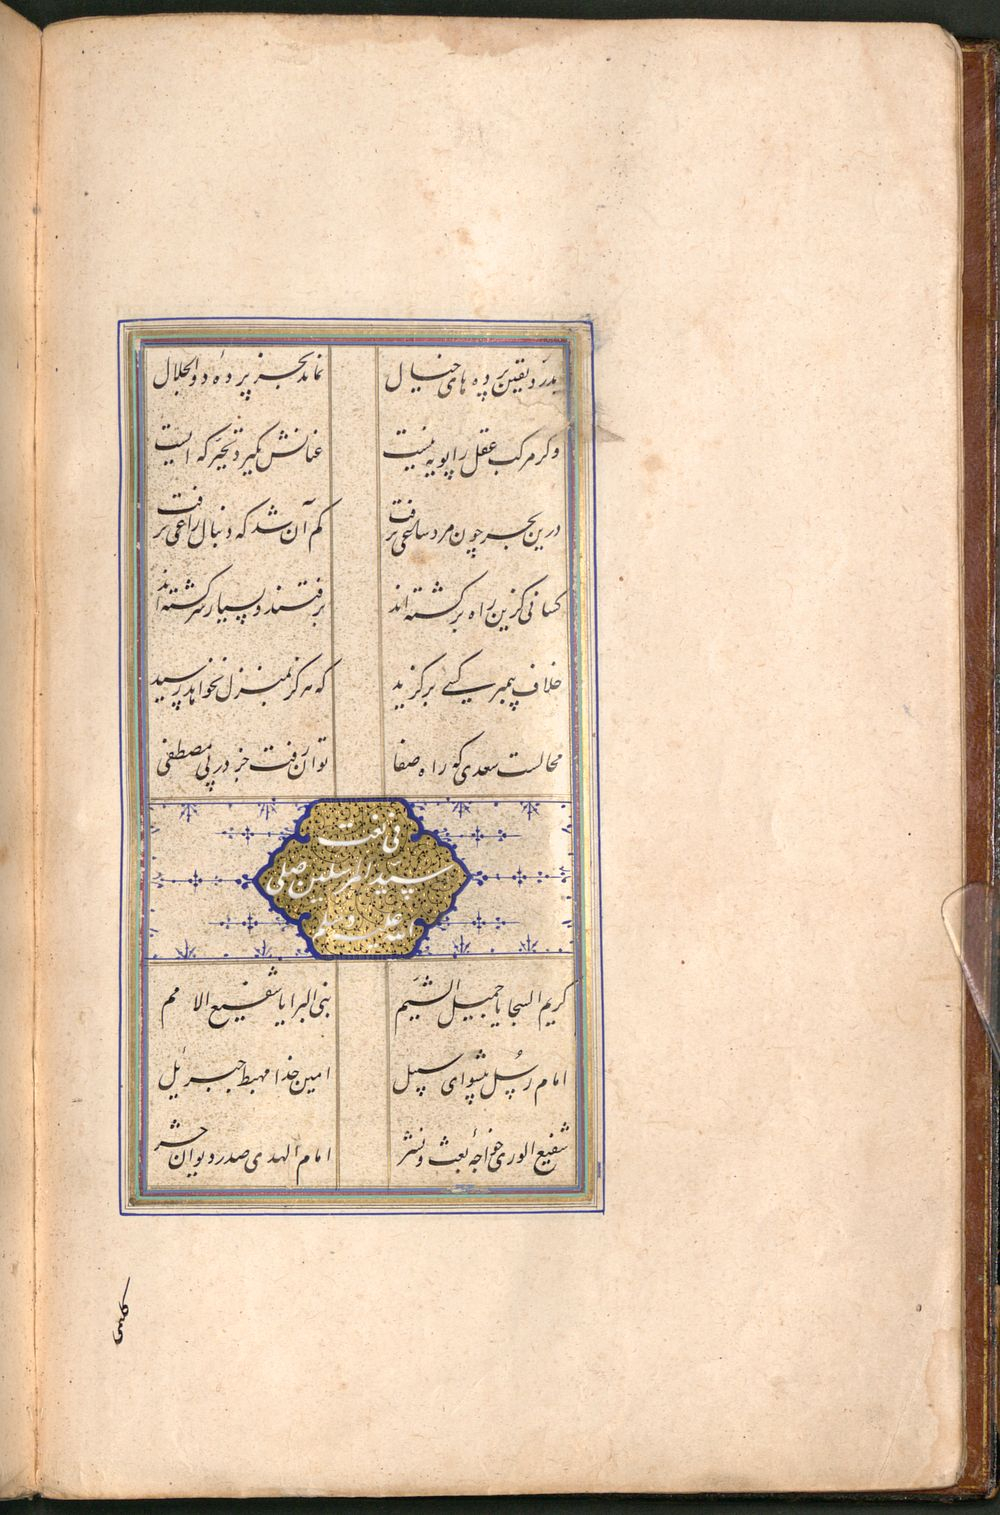 بدرد یقین پرده های خیال نماند بجز پردهٔ ذوالجلال
وکر مرکب عقل را پویه نیست عنانش بکیرد تحیر که ایست
درین بحر جون مرد ساعی نرفت کم آن شد که دنبال راعی نرفت
کسانی کزین راه برکشته اند برفتند و بسیار سرکشته اند
خلاف پیمبر کسی برکزید که هرکز بمنزل نخواهد رسید
محالست سعدی که راه صفا توان رفت جز در پی مصطفی
فی نعت
سید المرسلین صلی
الله علیه و سلم
کریم السجایا جمیل الشیم نبی البرایا شفیع الامم
امام رسل پیشوای سبیل امین خدا مهبط جبرئیل
شفیع الوری خواجهٔ بعث و نشر امام الهدی صدر دیوان حشر
کلیمی